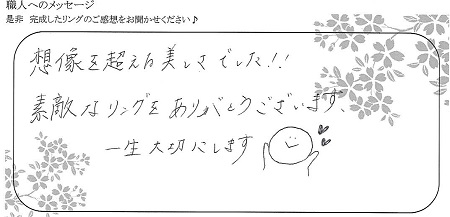 職人へのメッセージ
是非 完成したリングのご感想をお聞かせください♪
想像を超える美しさでした!!
素敵なリングをありがとうございます、
一生大切にします